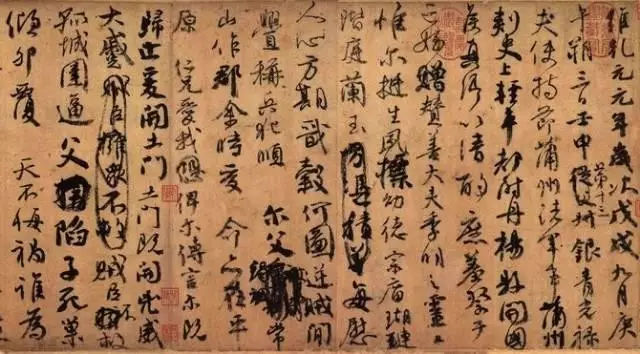 維乾元元年歲次戊戌九月庚
午朔三日壬申第十三叔銀青光祿
夫使持節蒲州諸軍事蒲州
刺史上輕車都尉丹楊縣開國
侯真卿以清酌庶羞祭于
亡姪贈贊善大夫季明之靈曰
惟爾挺生夙標幼德宗廟瑚璉
階庭蘭玉方憑積善每慰
人心方期戩穀何圖逆賊間
釁稱兵犯順 爾父竭誠常
山作郡余時受命亦在平
原仁兄愛我恐俾爾傳言爾既
歸止爰開土門土門既開凶威
大蹙賊臣擁眾不救賊臣不救
孤城圍逼父擒陷子死巢
傾卵覆 天不悔禍誰為